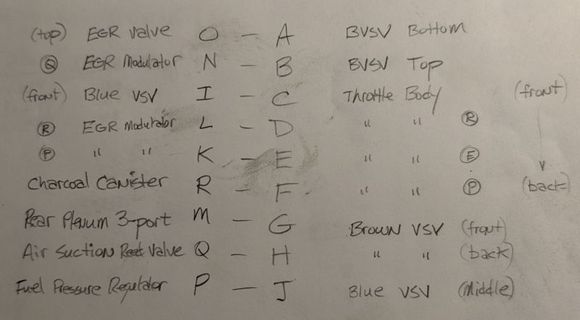 (top) EGR Valve O – A BVSV Bottom
Ⓠ EGR Modulator N – B BVSV Top
(front) Blue VSV I – C Throttle Body (front)
Ⓡ EGR Modulator L – D " " Ⓡ
Ⓟ " " K – E " " Ⓔ
Charcoal Canister R – F " " Ⓟ (back)
Rear Plenum 3-port M – G Brown VSV (front)
Air Suction Valve Q – H " " (back)
Fuel Pressure Regulator P – J Blue VSV (Middle)